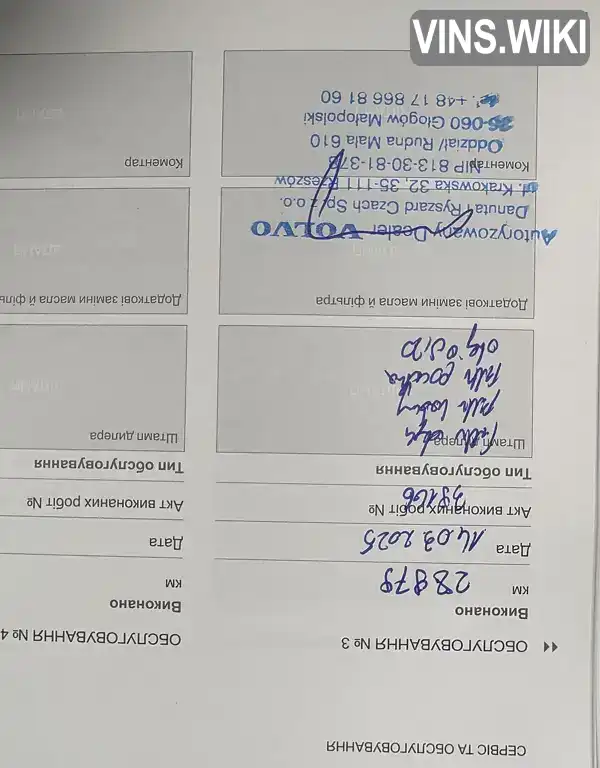 VINS.WIKI
СЕРВІС ТА ОБСЛУГОВУВАННЯ
ОБСЛУГОВУВАННЯ № 3
Виконано
км 28879
Дата 14.03.2025
Акт виконаних робіт №
Тип обслуговування
Штамп дилера
olej 0W20
Додаткові заміни масла й фільтра
Autoryzowany Dealer VOLVO
Danuta i Ryszard Czach Sp. z o.o.
ul. Krakowska 32, 35-111 Rzeszów
Коментар NIP 813-30-81-378
Oddział/ Rudna Mała 610
36-060 Głogów Małopolski
tel. +48 17 866 81 60
ОБСЛУГОВУВАННЯ № 4
Виконано
км
Дата
Акт виконаних робіт №
Тип обслуговування
Штамп дилера
Додаткові заміни масла й фільт
Коментар